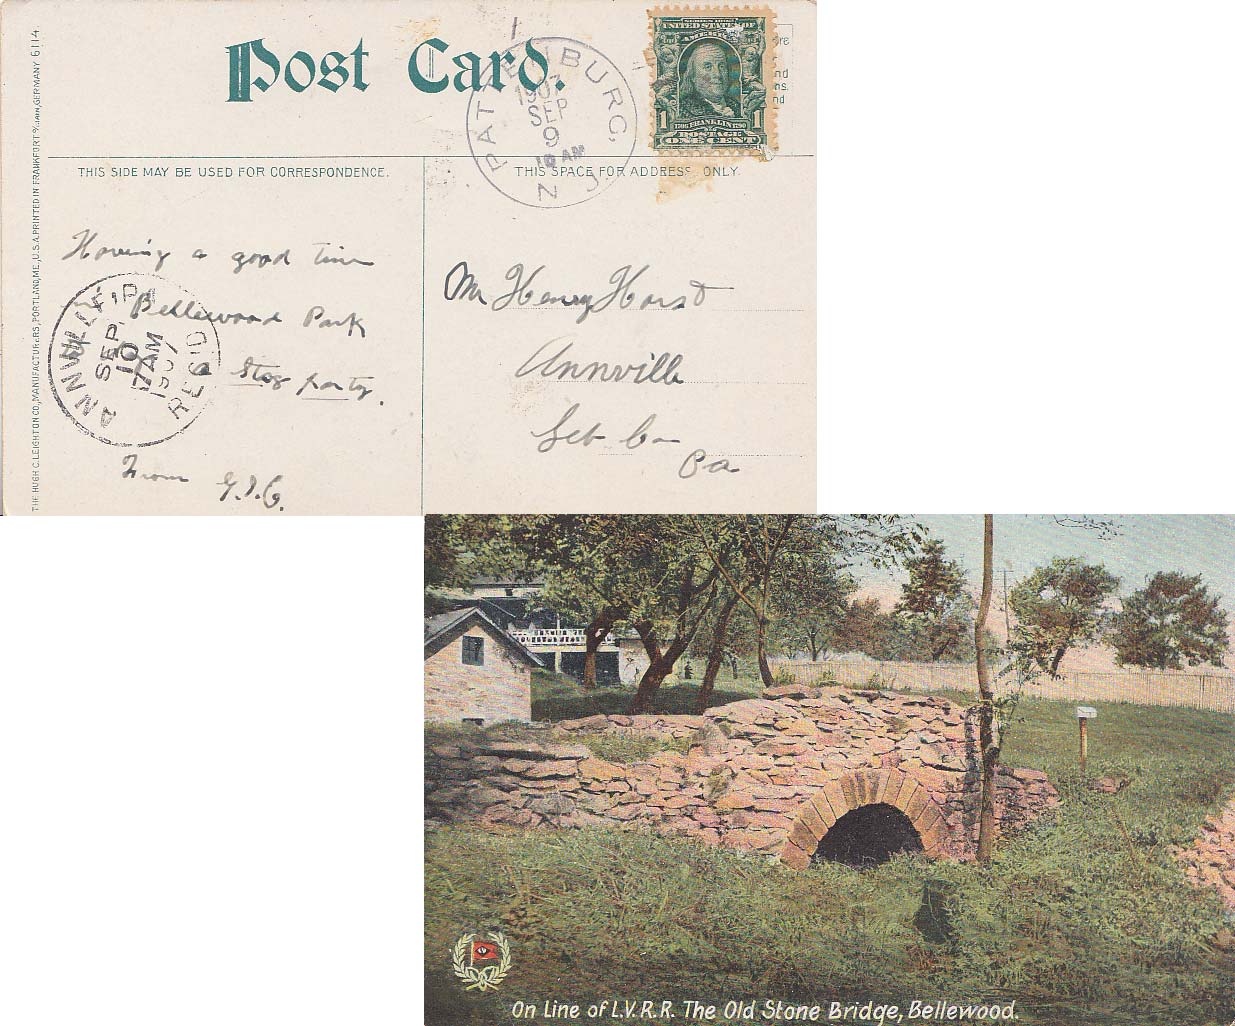 Post Card.
PATTENBURG,
1907
SEP
9
10 AM
N. J.
SERIES 1902
UNITED STATES OF
AMERICA
1706 FRANKLIN 1790
1 1
POSTAGE
ONE CENT
THIS SIDE MAY BE USED FOR CORRESPONDENCE.
THIS SPACE FOR ADDRESS ONLY.
THE HUGH C. LEIGHTON CO., MANUFACTURERS, PORTLAND, ME., U.S.A. PRINTED IN FRANKFORT o/MAIN, GERMANY 6114
Having a good time
in Bellewood Park
a Stag party.
From G.I.G.
ANNVILLE, PA
SEP
10
7 AM
1907
REC'D
Mr Henry Horst
Annville
Leb Co
Pa
On Line of L.V.R.R. The Old Stone Bridge, Bellewood.